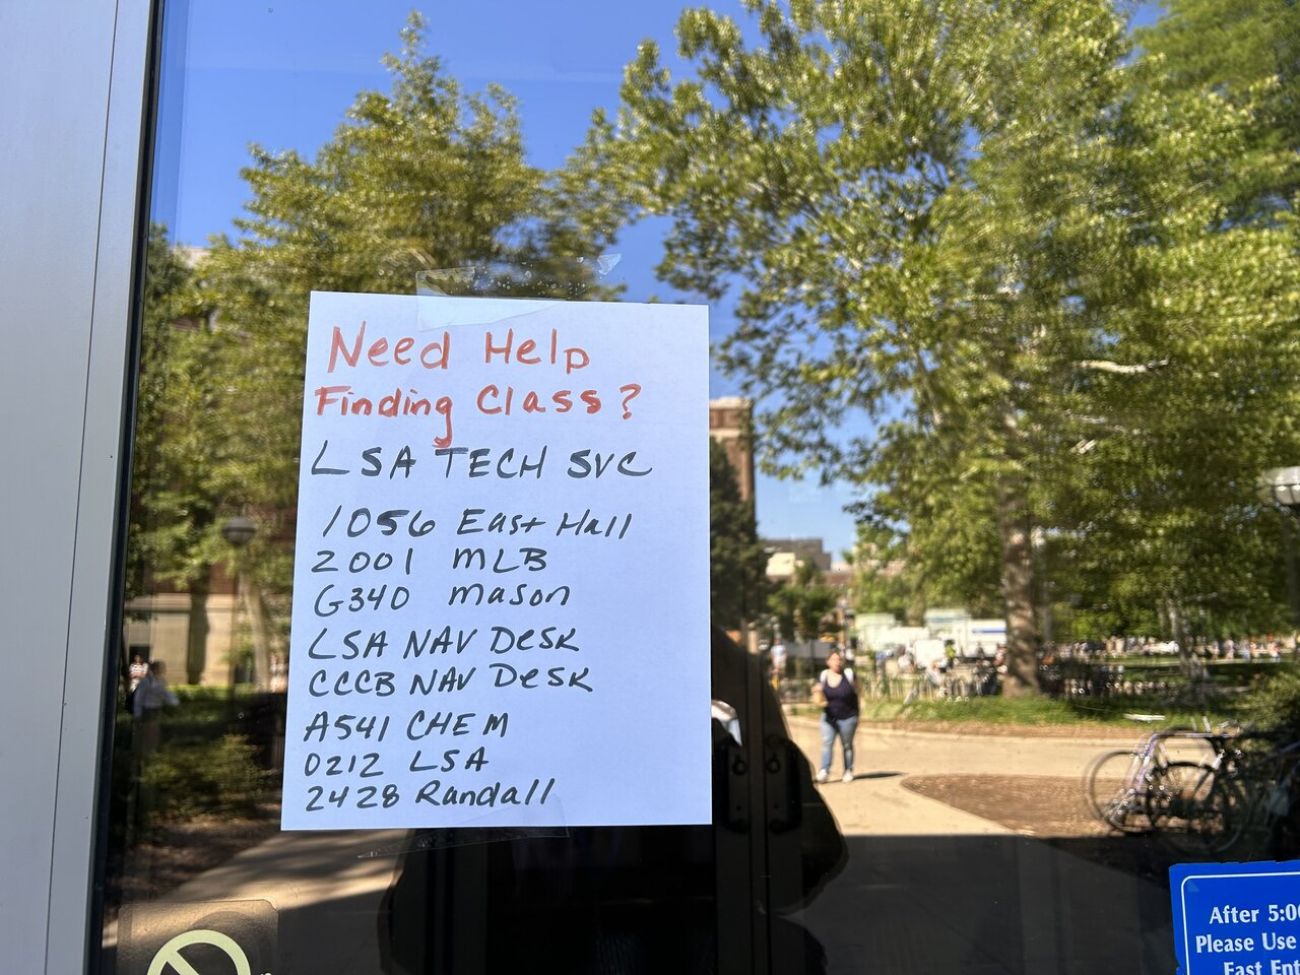 Need Help
Finding Class?
LSA TECH SVC
1056 East Hall
2001 MLB
G340 Mason
LSA NAV Desk
CCCB NAV Desk
A541 CHEM
0212 LSA
2428 Randall
After 5:0
Please Use
East Ent